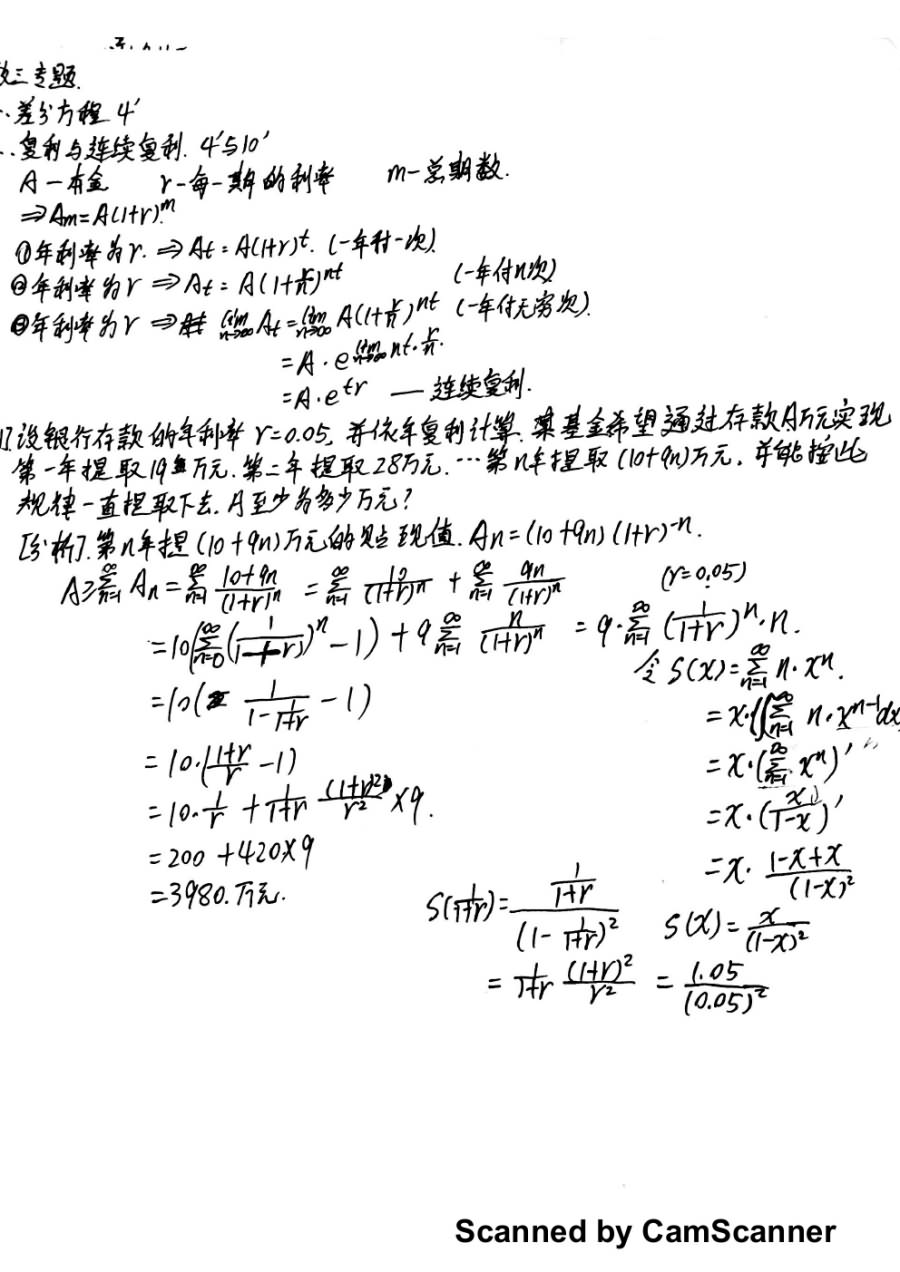 数三专题.
一.差分方程 4'
二.复利与连续复利. 4'与10'
A-本金 r-每一期的利率 m-总期数.
⇒Am=A(1+r)^m
①年利率为r. ⇒At=A(1+r)^t. (一年付一次).
②年利率为r ⇒At=A(1+r/n)^nt (一年付n次)
③年利率为r ⇒ lim n→∞ At = lim n→∞ A(1+r/n)^nt (一年付无穷次).
=A·e^(lim n→∞ nt·r/n)
=A·e^tr —连续复利.
设银行存款的年利率 r=0.05, 并依年复利计算. 某基金希望通过存款A万元实现
第一年提取19万元.第二年提取28万元.…第n年提取(10+9n)万元. 并能按此
规律一直提取下去.A至少为多少万元?
[分析].第n年提(10+9n)万元的现值. An=(10+9n)(1+r)^-n.
A≥∑n=1^∞ An=∑n=1^∞ (10+9n)/(1+r)^n =∑n=1^∞ 10/(1+r)^n + ∑n=1^∞ 9n/(1+r)^n (r=0.05)
=10(∑n=0^∞ (1/(1+r))^n -1) + 9∑n=1^∞ n/(1+r)^n = 9·∑n=1^∞ (1/(1+r))^n·n.
令 S(x)=∑n=1^∞ n·x^n.
=10( 1/(1-1/(1+r)) -1)
=x·∫∑n=1^∞ n·x^(n-1)dx
=10·((1+r)/r -1)
=x·(∑n=1^∞ x^n)'
=10·1/r + 1/(1+r) (1+r)^2/r^2 ×9.
=x·(x/(1-x))'
=200+420×9
=x·(1-x+x)/(1-x)^2
=3980.万元.
S(1/(1+r))=(1/(1+r))/(1-1/(1+r))^2
S(x)=x/(1-x)^2
=1/(1+r) (1+r)^2/r^2 = 1.05/(0.05)^2
Scanned by CamScanner